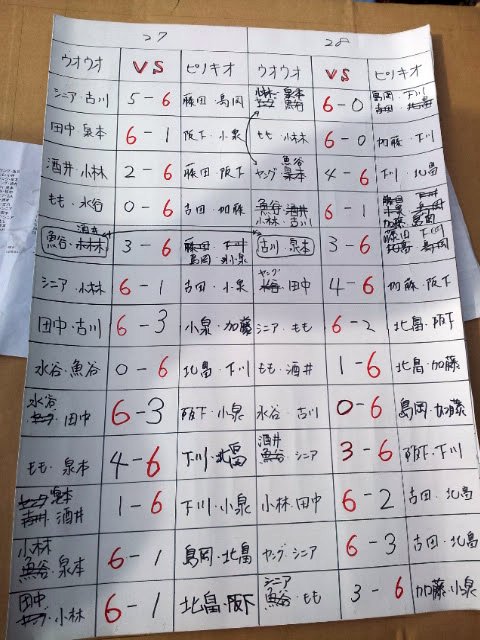 27 28
ウオウオ VS ピリキオ ウオウオ VS ピリキオ
シニア・古川 5-6 藤田・島岡 小林・泉本 6-0 島岡・下川
田中・泉本 6-1 阪下・小泉 もも・小林 6-0 加藤・下川
酒井・小林 2-6 藤田・阪下 ヤング・魚谷 4-6 下川・北畠
もも・水谷 0-6 古田・加藤 小林・古川 6-1 加藤・島岡
魚谷・酒井 3-6 島岡・小泉 古川・泉本 3-6 下川・島岡
シニア・小林 6-1 古田・小泉 ヤング・田中 4-6 加藤・阪下
田中・古川 6-3 小泉・加藤 シニア・もも 6-2 北畠・阪下
水谷・魚谷 0-6 北畠・下川 もも・酒井 1-6 北畠・加藤
水谷・田中 6-3 阪下・小泉 水谷・古川 0-6 島岡・加藤
もも・泉本 4-6 下川・北畠 酒井・シニア 3-6 阪下・下川
泉本・酒井 1-6 下川・小泉 小林・田中 6-2 古田・北畠
小林・泉本 6-1 島岡・北畠 ヤング・シニア 6-3 古田・北畠
田中・小林 6-1 北畠・阪下 シニア・もも 3-6 加藤・小泉